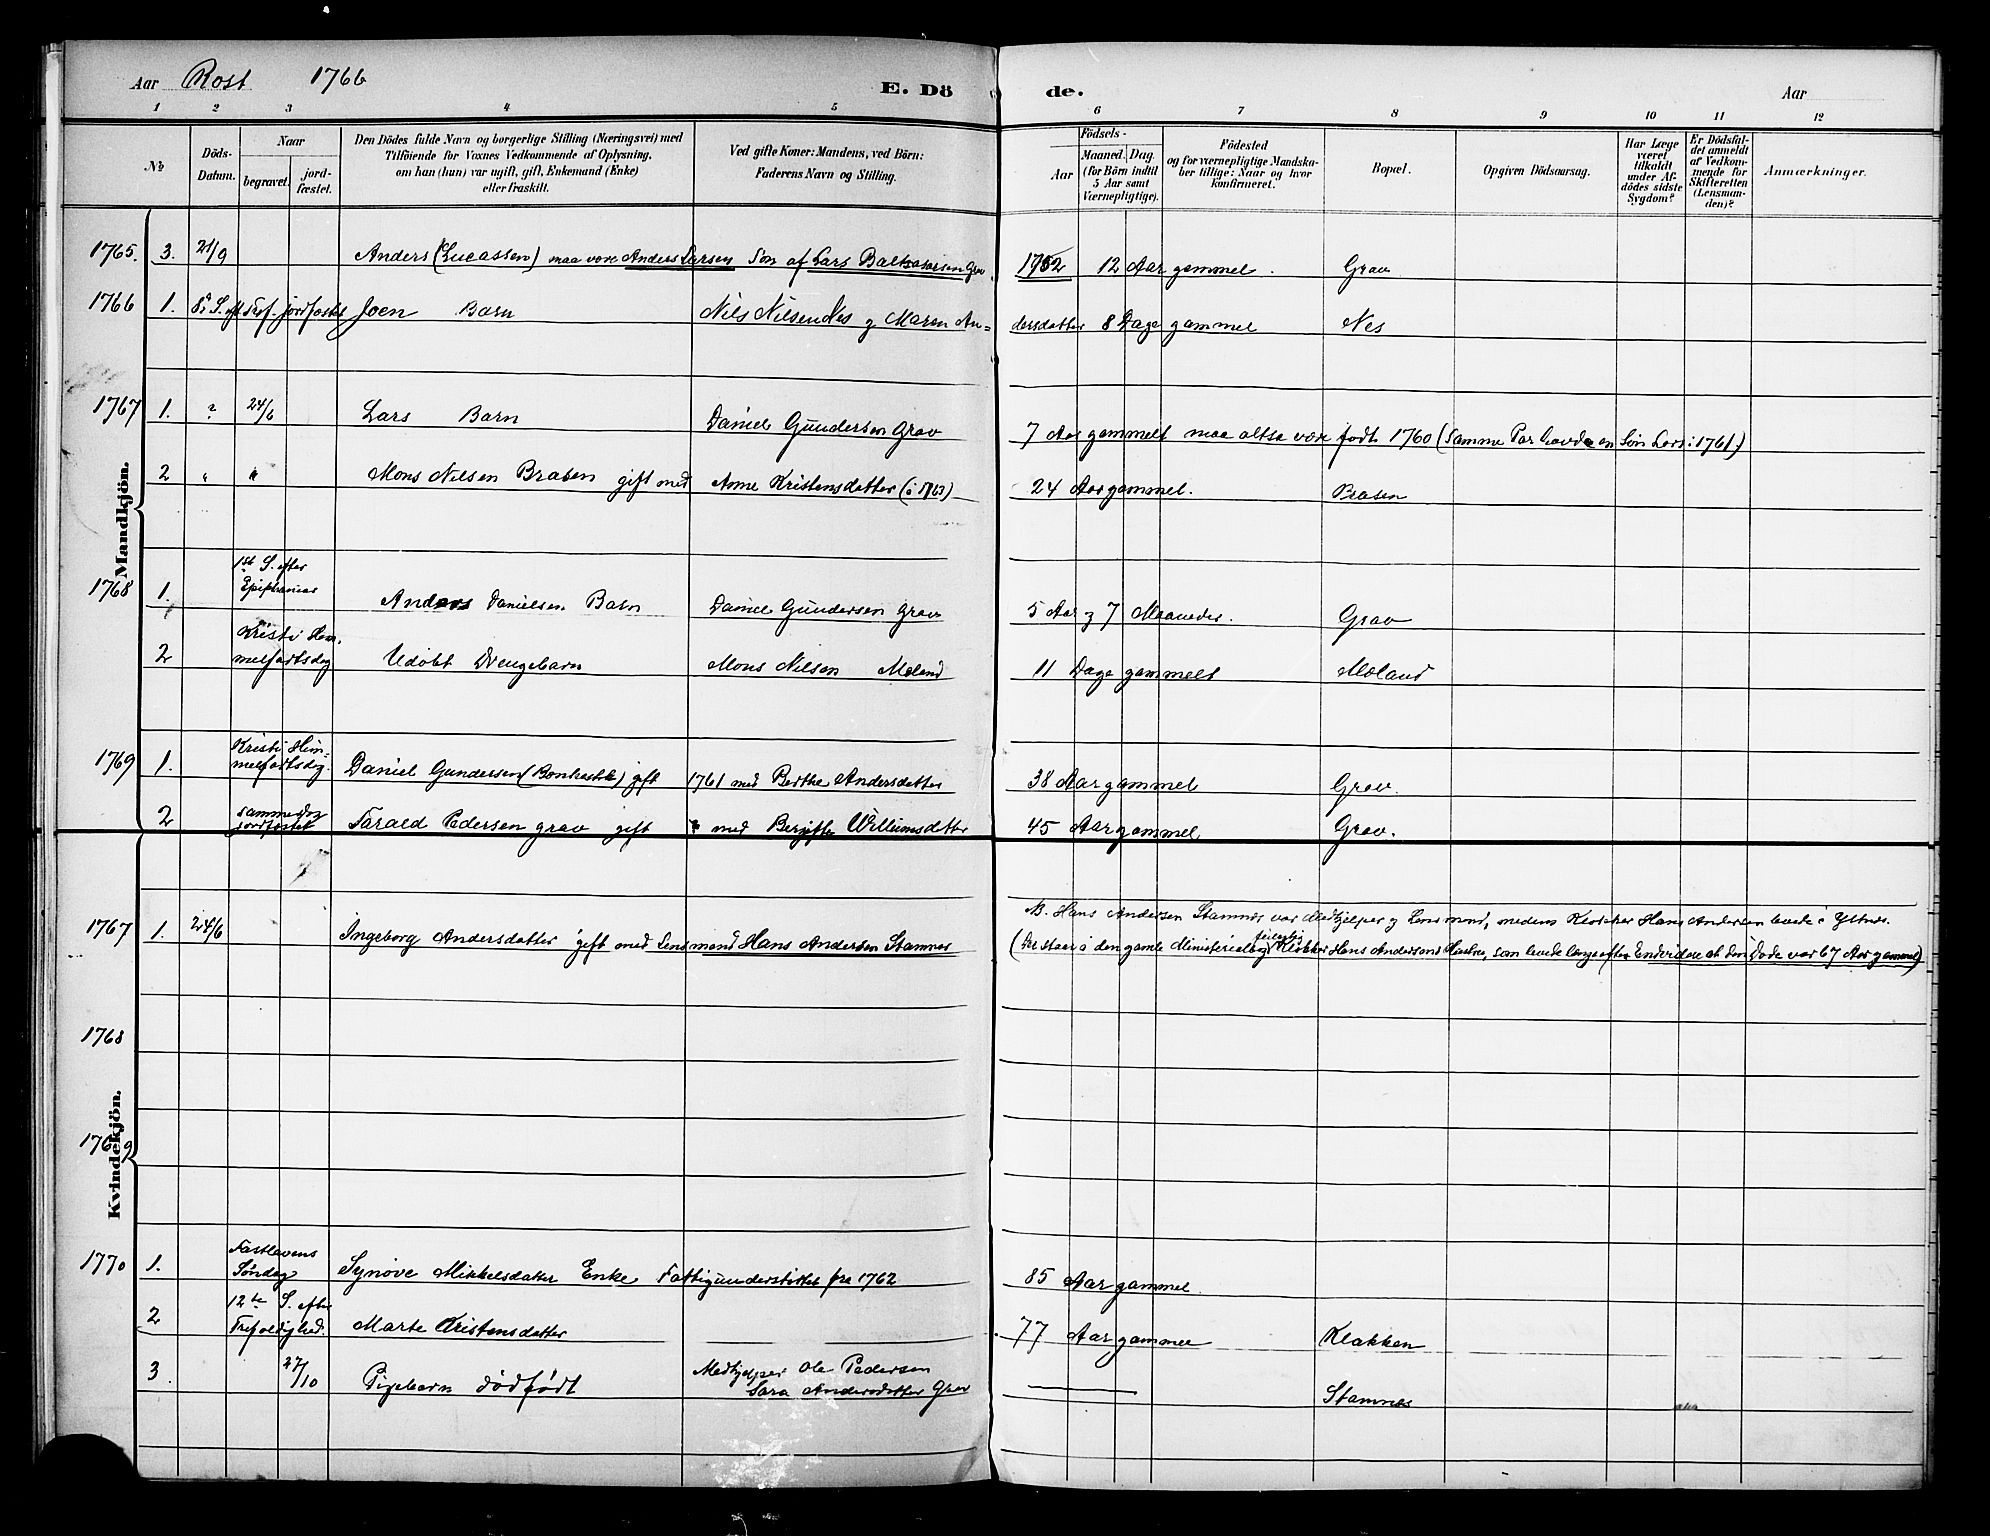 Aar Røst 1766 E. Dö de. Aar
1 2 3 4 5 6 7 8 9 10 11 12
№
Döds-
Datum.
Naar
begravet.
jord-
fæstet.
Den Dödes fulde Navn og borgerlige Stilling (Næringsvei) med
Tilföiende for Voxnes Vedkommende af Oplysning,
om han (hun) var ugift, gift, Enkemand (Enke)
eller fraskilt.
Ved gifte Koner: Mandens, ved Börn:
Faderens Navn og Stilling.
Födsels-
Aar
Maaned.
Dag
(for Börn indtil
5 Aar samt
Værnepligtige).
Födested
og for værnepligtige Mandska-
ber tillige: Naar og hvor
konfirmeret.
Bopæl.
Opgiven Dödsaarsag.
Har Læge
været
tilkaldt
under Af-
dödes sidste
Sygdom?
Er Dödsfal-
det anmeldt
af Vedkom-
mende for
Skifteretten
(Lensman-
den)?
Anmærkninger.
Mandkjön.
1765. 3. 21/9 Anders (Lucassen) maa være Anders Larsen Søn af Lars Baltzarsen Grav 1752 12 Aar gammel. Grav
1766 1. S. eft Tref. jordfæstet Joen Barn Nils Nilsen Nes g Maren An=
dersdatter 8 Dage gammel Nes
1767 1. " 24/6 Lars Barn Daniel Gundersen Grav 7 Aar gammelt maa altsa være født 1760 (Samme Par havde en Søn Lars i 1761.)
2 " " Mons Nilsen Brasen gift med Anne Kristensdatter (i 1763) 24 Aar gammel. Brasen
1768 1. 1st S. efter
Epiphanias Anders Danielsen Barn Daniel Gundersen Grav 5 Aar g 7 Maaneder. Grav
2 Kristi Him.
melfartsdag Udøbt Drengebarn Mons Nilsen Moland 11 Dage gammelt Moland
1769 1. Kristi Him=
melfartsdag. Daniel Gundersen gift 1761 med Berthe Andersdatter 38 Aar gammel Grav.
2 samme Dag
jordfæstet Tarald Pedersen grav gift med Birgitte Willumsdatter 45 Aar gammel Grav.
Kvindekjön.
1767 1. 24/6 Ingeborg Andersdatter gift med Lensmand Hans Andersen Stamnes
N. Hans Andersen Stamnes var Medhjelper g Lensmand, medens Klokker Hans Andersen levede i Ystnes.
(Der staar i den gamle Ministerialbog feilagtig Klokker Hans Andersens Hustru, som levede længe efter. Endvidere at den Døde var 67 Aar gammel)
1768
1769
1770 1. Fastlavens
Søndag Synøve Mikkelsdatter Enke Fattigunderstøttet fra 1762 85 Aar gammel
2 12te S. efter
Trefoldighed. Marte Kristensdatter 77 Aar gammel Klakken
3. 27/10 Pigebarn dødfødt Medhjelper Ole Pedersen
Sara Andersdatter Grav Stamnes